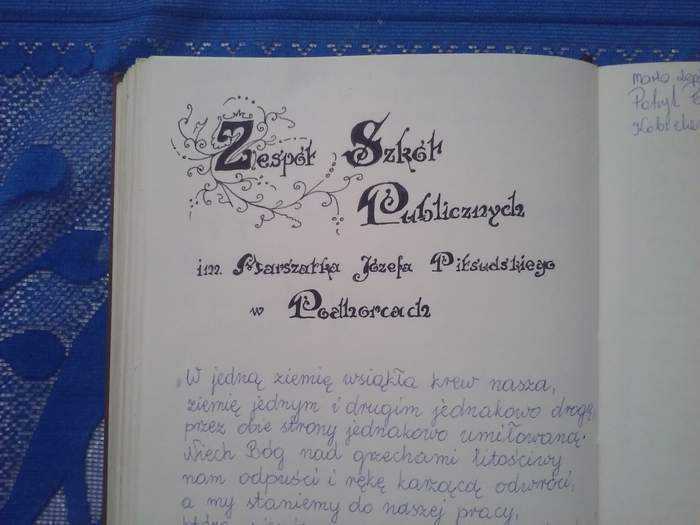 Zespół Szkół
Publicznych
im. Marszałka Józefa Piłsudskiego
w Podhorcach
„W jedną ziemię wsiąkła krew nasza,
ziemię jednym i drugim jednakowo drogą,
przez obie strony jednakowo umiłowaną.
Niech Bóg nad grzechami litościwy
nam odpuści i rękę karzącą odwróci,
a my staniemy do naszej pracy,